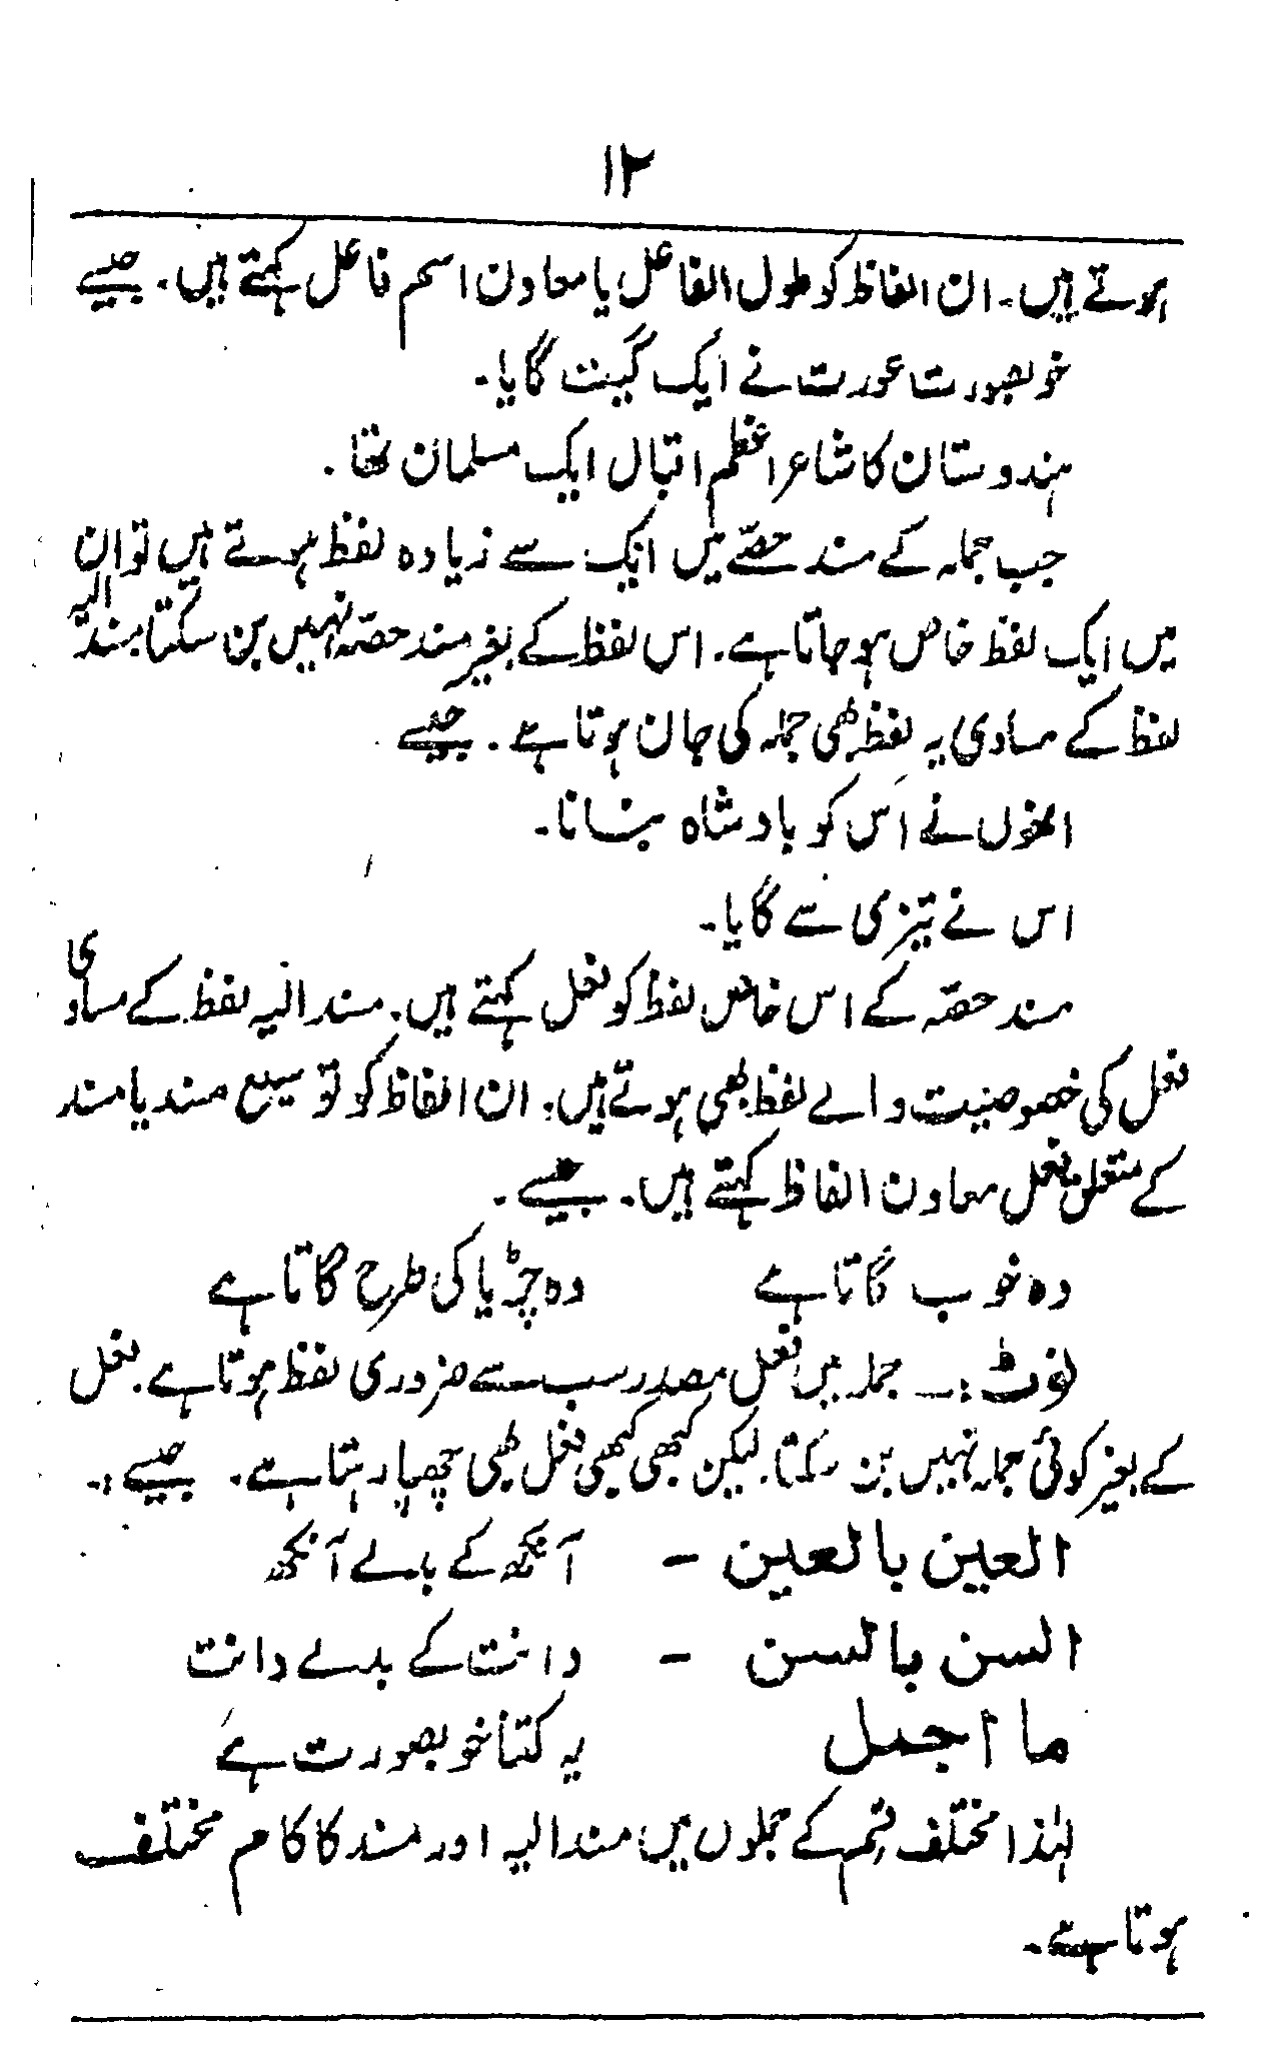 ۱۲
ہوتے ہیں۔ ان الفاظ کو طول الفاعل یا معاون اسم فاعل کہتے ہیں۔ جیسے
خوبصورت عورت نے ایک گیت گایا۔
ہندوستان کا شاعر اعظم اقبال ایک مسلمان تھا۔
جب جملہ کے مسند حصّے میں ایک سے زیادہ لفظ ہوتے ہیں تو ان
میں ایک لفظ خاص ہو جاتا ہے۔ اس لفظ کے بغیر مسند حصّہ نہیں بن سکتا مسند الیہ
لفظ کے مساوی یہ لفظ بھی جملہ کی جان ہوتا ہے۔ جیسے
انھوں نے اس کو بادشاہ بنانا۔
اس نے تیزی سے گایا۔
مسند حصّہ کے اس خاص لفظ کو فعل کہتے ہیں۔ مسند الیہ لفظ کے مساوی
فعل کی خصوصیت والے لفظ بھی ہوتے ہیں۔ ان الفاظ کو توسیع مسند یا مسند
کے متعلق فعل معاون الفاظ کہتے ہیں۔ جیسے۔
وہ خوب گاتا ہے وہ چڑیا کی طرح گاتا ہے
نوٹ:۔ جملہ میں فعل مصدر سب سے ضروری لفظ ہوتا ہے۔ فعل
کے بغیر کوئی جملہ نہیں بن سکتا۔ لیکن کبھی کبھی فعل بھی چھپا رہتا ہے۔ جیسے:۔
العین بالعین – آنکھ کے بدلے آنکھ
السن بالسن – دانت کے بدلے دانت
ما اجمل یہ کتنا خوبصورت ہے
لہٰذا مختلف قسم کے جملوں میں مسند الیہ اور مسند کا کام مختلف
ہوتا ہے۔